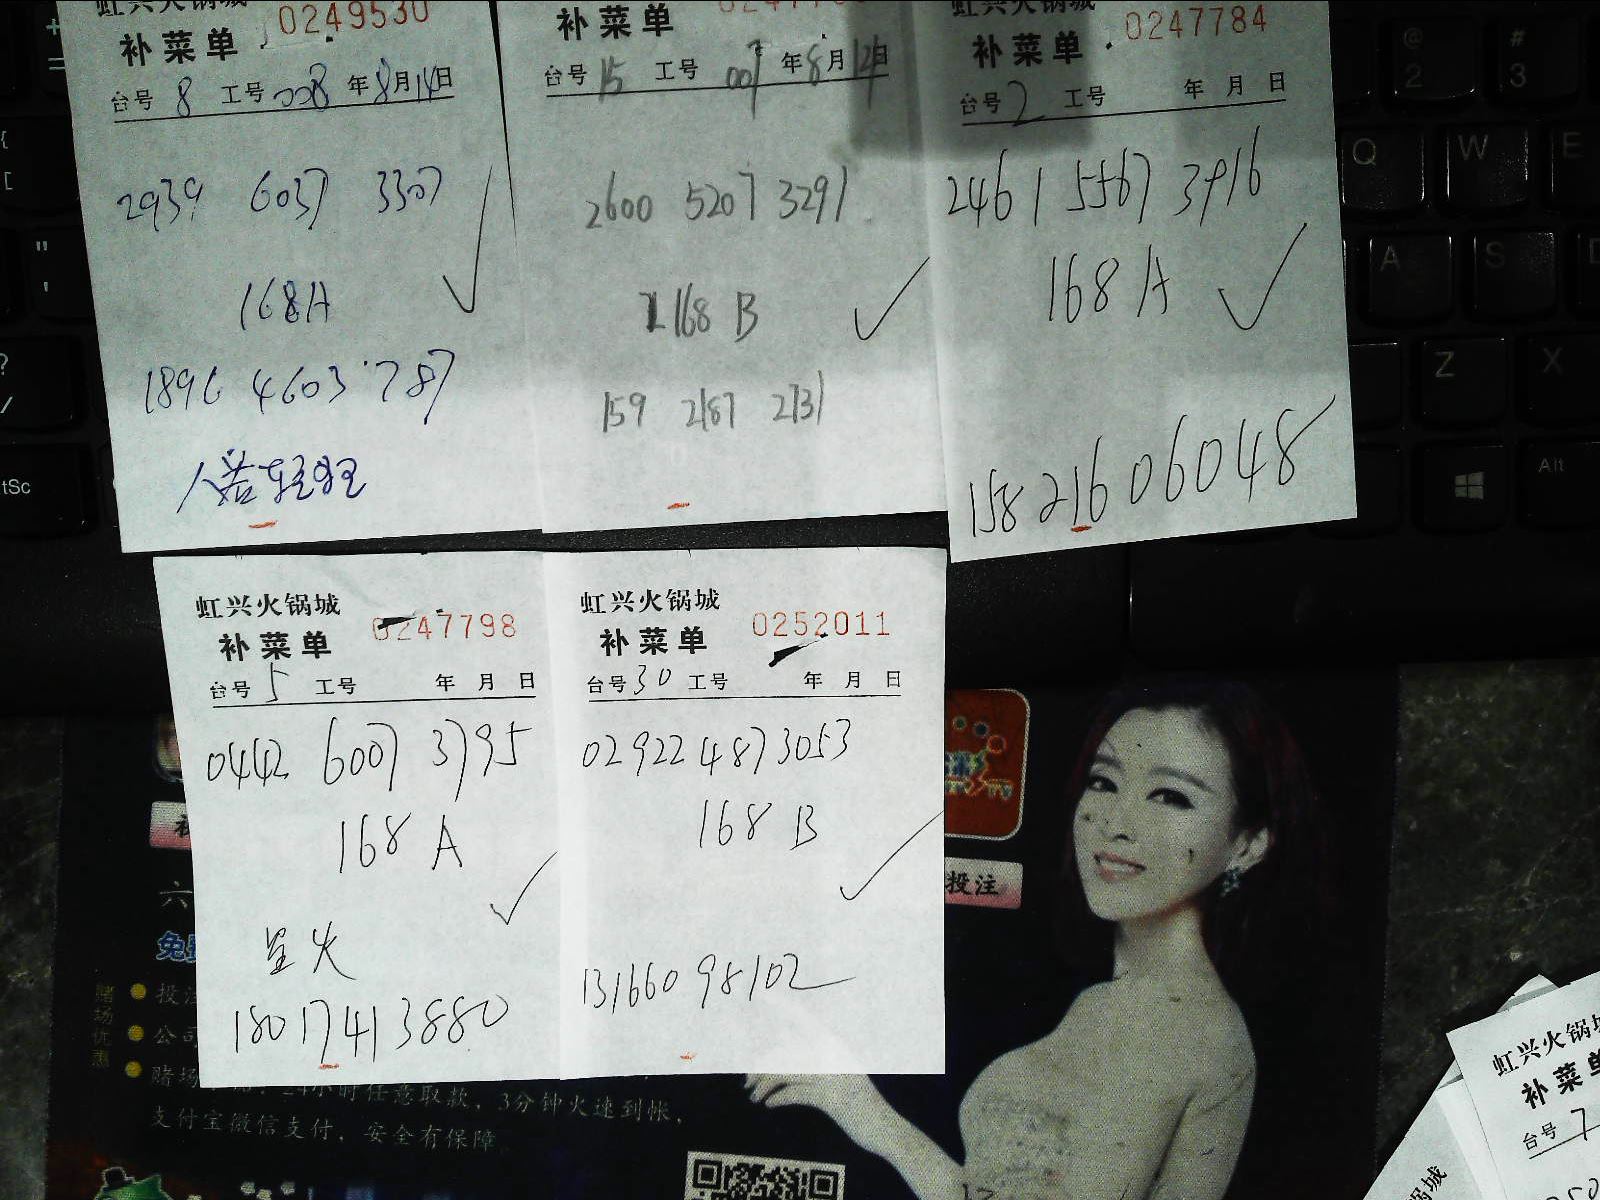 虹兴火锅城
补菜单
0249530
台号 8 工号 008 年 8月14日
2939 6037 3307
168A
1896 4603 787
人若轻狂
补菜单
台号 15 工号 007 年 8月12日
2600 5207 3291
168 B
159 2187 2731
虹兴火锅城
补菜单
0247784
台号 2 工号 年 月 日
2461 5567 3916
168 A
15821606048
虹兴火锅城
补菜单
0247798
台号 5 工号 年 月 日
0442 6007 3795
168 A
星火
18017413880
虹兴火锅城
补菜单
0252011
台号 30 工号 年 月 日
02922 4873053
168 B
13166098102
投注
六
免费
投注
公司
赌场
赌场优惠
24小时任意取款，3分钟火速到帐，
支付宝微信支付，安全有保障。
虹兴火锅城
补菜单
台号 7
火锅城
@
2
#
3
Q
W
E
A
S
D
Z
X
Alt
tSc